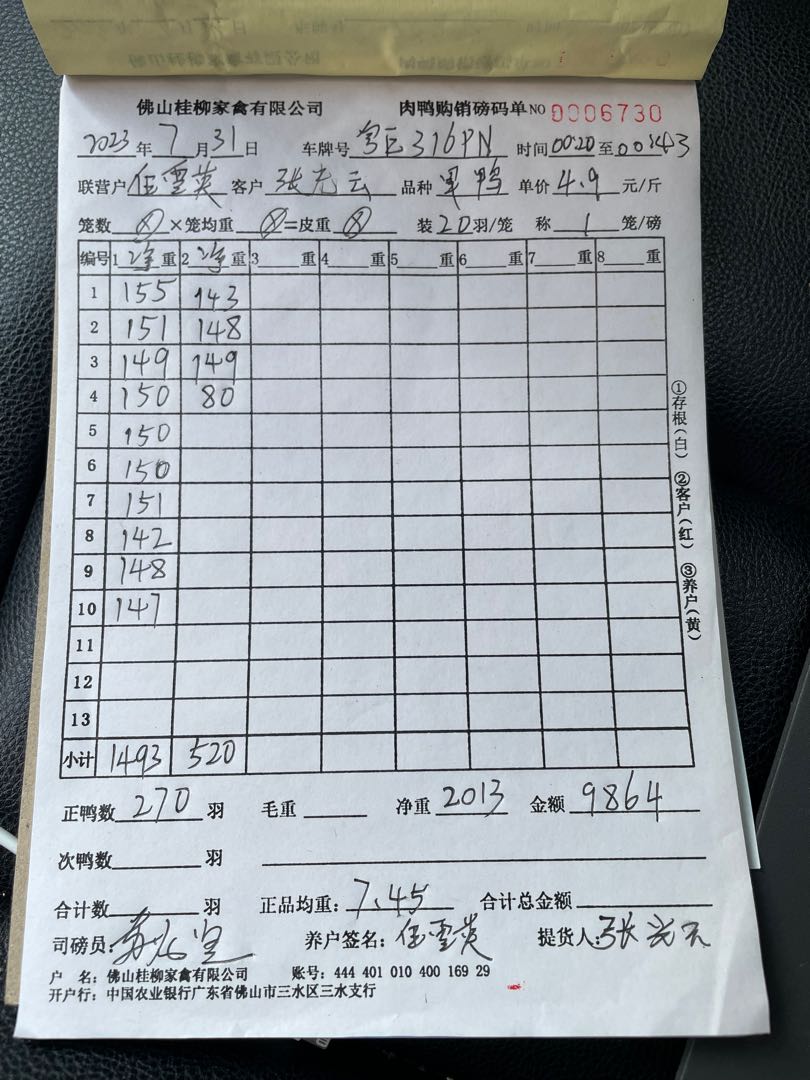 佛山桂柳家禽有限公司 肉鸭购销磅码单 NO 0006730
2023年7月31日 车牌号 粤E316PN 时间00:20至00:43
联营户任雪英 客户 张光云 品种 果鸭 单价4.9元/斤
笼数ⓧ×笼均重ⓧ=皮重ⓧ 装20羽/笼 称1笼/磅
编号 1净重 2净重 3重 4重 5重 6重 7重 8重
1 155 143
2 151 148
3 149 149
4 150 80
5 150
6 150
7 151
8 142
9 148
10 147
11
12
13
小计 1493 520
①存根(白) ②客户(红) ③养户(黄)
正鸭数270羽 毛重 净重2013 金额9864
次鸭数 羽
合计数 羽 正品均重:7.45 合计总金额
司磅员: 养户签名:任雪英 提货人:张光云
户 名:佛山桂柳家禽有限公司 账号:444 401 010 400 169 29
开户行:中国农业银行广东省佛山市三水区三水支行